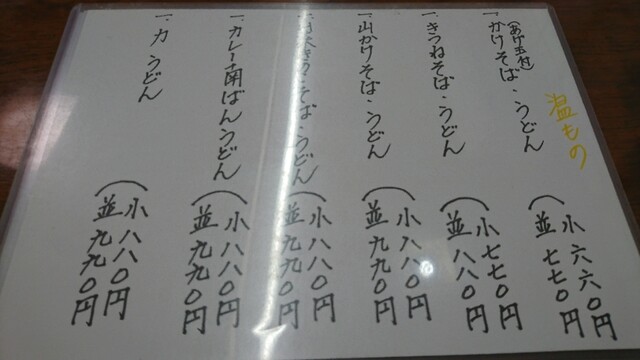 温もの
一、かけそば・うどん
(あげ玉付)
小 六六〇円
並 七七〇円
一、きつねそば・うどん
小 七七〇円
並 八八〇円
一、山かけそば・うどん
小 八八〇円
並 九九〇円
そば・うどん
小 八八〇円
並 九九〇円
一、カレー南ばんうどん
小 八八〇円
並 九九〇円
一、力うどん
小 八八〇円
並 九九〇円